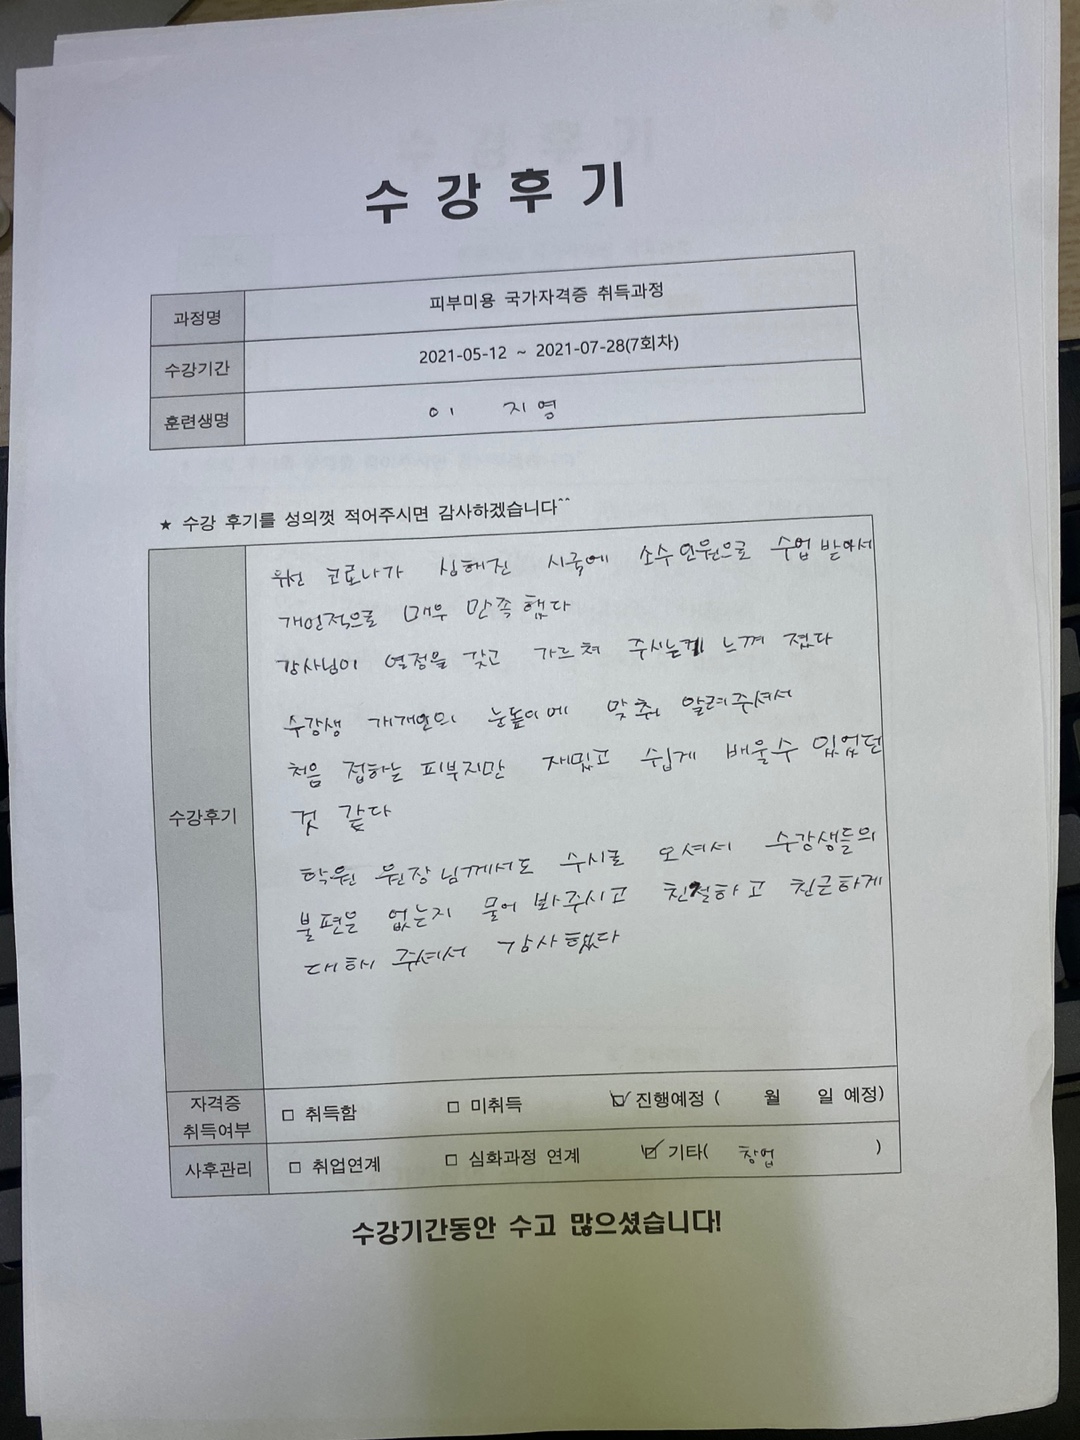 수강후기
과정명 피부미용 국가자격증 취득과정
수강기간 2021-05-12 ~ 2021-07-28(7회차)
훈련생명 이 지영
★ 수강 후기를 성의껏 적어주시면 감사하겠습니다^^
우선 코로나가 심해진 시국에 소수 인원으로 수업 받아서
개인적으로 매우 만족했다
강사님이 열정을 갖고 가르쳐 주시는게 느껴 졌다
수강생 개개인의 눈높이에 맞춰 알려주셔서
처음 접하는 피부지만 재밌고 쉽게 배울수 있었던
수강후기
것 같다
학원 원장님께서도 수시로 오셔서 수강생들의
불편은 없는지 물어 봐주시고 친절하고 친근하게
대해 주셔서 감사했다
자격증 취득여부 □ 취득함 □ 미취득 ☑ 진행예정 ( 월 일 예정)
사후관리 □ 취업연계 □ 심화과정 연계 ☑ 기타( 창업 )
수강기간동안 수고 많으셨습니다!